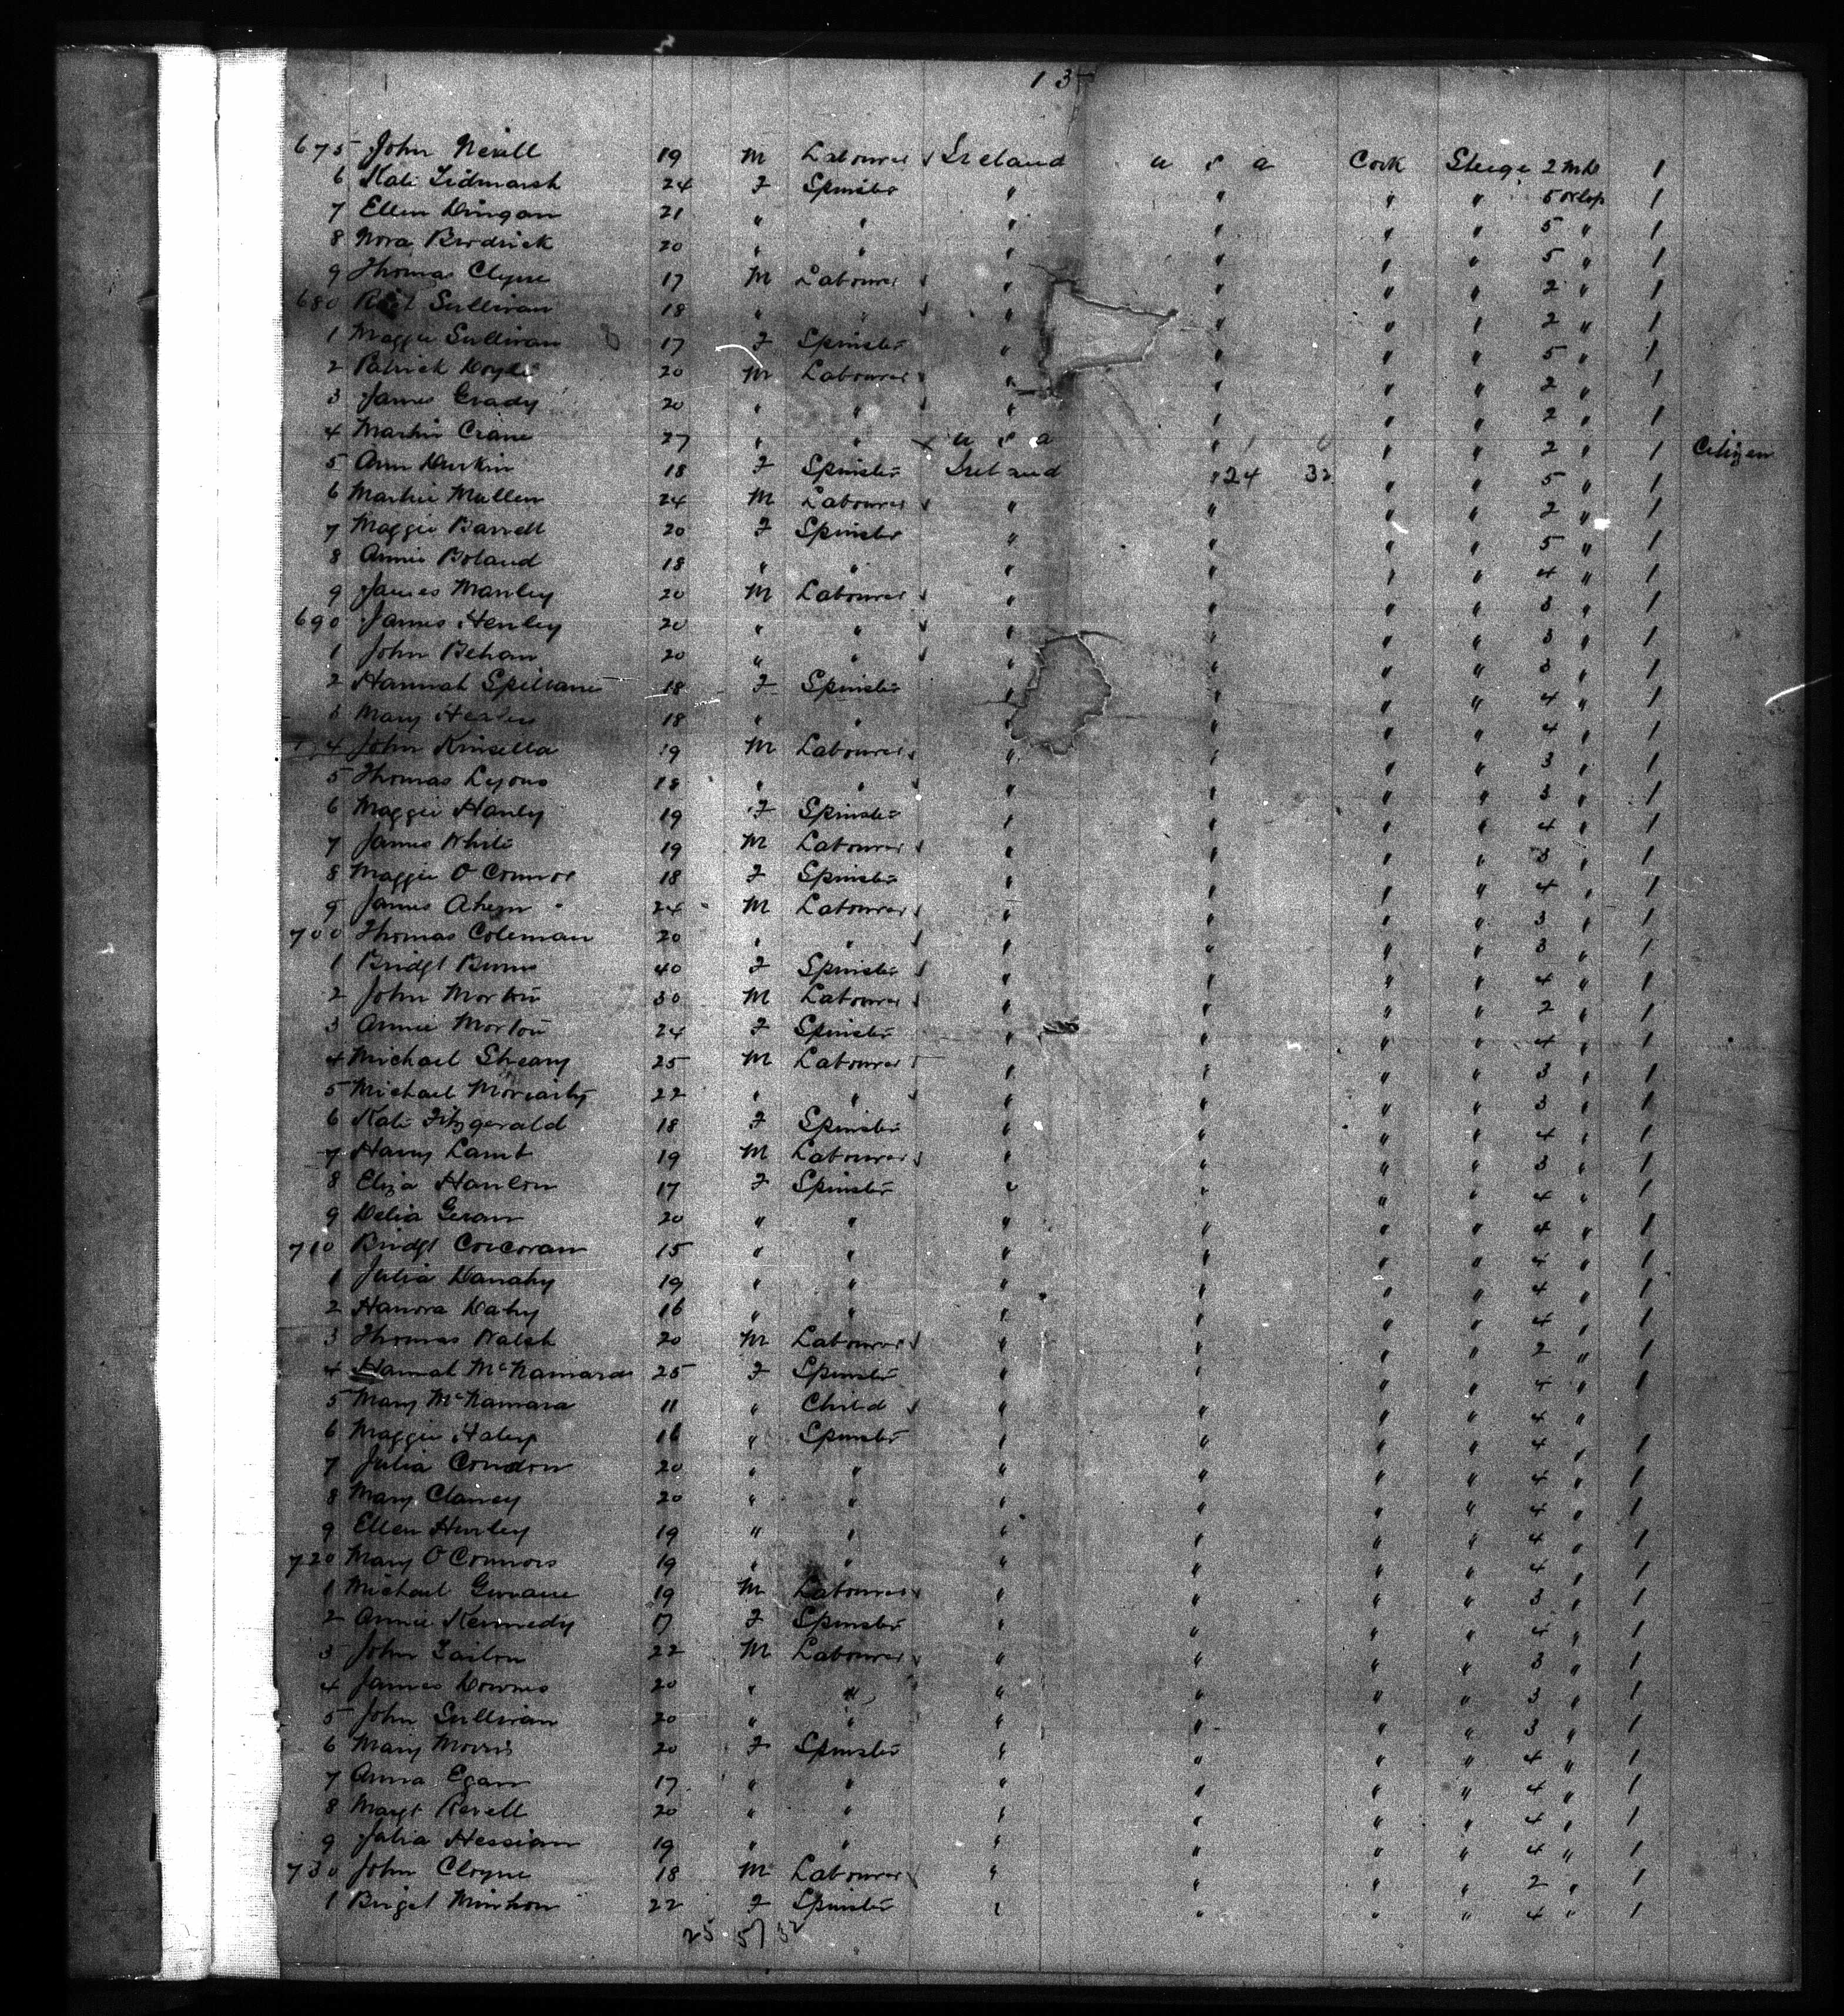 13
675 John Nevill 19 M Labourer Ireland U S A Cork Steerge 2 Mtd 1
6 Kate Tidmarsh 24 F Spinster " " " " 5 orlop 1
7 Ellen Dingan 21 " " " " " " 5 " 1
8 Nora Brodrick 20 " " " " " " 5 " 1
9 Thomas Clyne 17 M Labourer " " " " 2 " 1
680 Sullivan 18 " " " " " " 2 " 1
1 Maggie Sullivan 17 F Spinster " " " " 5 " 1
2 Patrick Doyle 20 M Labourer " " " " 2 " 1
3 James Grady 20 " " " " " " 2 " 1
4 Martin Crane 27 " " U S A " " " 2 " 1 Citizen
5 Ann Durkin 18 F Spinster Ireland " 24 32 " " 5 " 1
6 Martin Mullen 24 M Labourer " " " " 2 " 1
7 Maggie Barrett 20 F Spinster " " " " 5 " 1
8 Annie Boland 18 " " " " " " 4 " 1
9 James Manley 20 M Labourer " " " " 3 " 1
690 James Henley 20 " " " " " " 3 " 1
1 John Behan 20 " " " " " " 3 " 1
2 Hannah Spillane 18 F Spinster " " " " 4 " 1
3 Mary 18 " " " " " " 4 " 1
4 John Kinsella 19 M Labourer " " " " 3 " 1
5 Thomas Lyons 18 " " " " " " 3 " 1
6 Maggie Hanly 19 F Spinster " " " " 4 " 1
7 James White 19 M Labourer " " " " 3 " 1
8 Maggie O Connor 18 F Spinster " " " " 4 " 1
9 James Ahern 24 M Labourer " " " " 3 " 1
700 Thomas Coleman 20 " " " " " " 3 " 1
1 Bridgt Burns 40 F Spinster " " " " 4 " 1
2 John Morton 30 M Labourer " " " " 2 " 1
3 Annie Morton 24 F Spinster " " " " 4 " 1
4 Michael Sheany 25 M Labourer " " " " 3 " 1
5 Michael Moriarty 22 " " " " " " 3 " 1
6 Kate Fitzgerald 18 F Spinster " " " " 4 " 1
7 Harry Lamb 19 M Labourer " " " " 3 " 1
8 Eliza Hanlon 17 F Spinster " " " " 4 " 1
9 Delia Geran 20 " " " " " " 4 " 1
710 Bridgt Corcoran 15 " " " " " " 4 " 1
1 Julia Danahy 19 " " " " " " 4 " 1
2 Hanora Dahy 16 " " " " " " 4 " 1
3 Thomas Walsh 20 M Labourer " " " " 2 " 1
4 Hannah McNamara 25 F Spinster " " " " 4 " 1
5 Mary McNamara 11 " Child " " " " 4 "
6 Maggie Haley 16 " Spinster " " " " 4 " 1
7 Julia Condon 20 " " " " " " 4 " 1
8 Mary Clancy 20 " " " " " " 4 " 1
9 Ellen Hurley 19 " " " " " " 4 " 1
720 Mary O Connors 19 " " " " " " 4 " 1
1 Michael Guvane 19 M Labourer " " " " 3 " 1
2 Annie Kennedy 17 F Spinster " " " " 4 " 1
3 John 22 M Labourer " " " " 3 " 1
4 James Downes 20 " " " " " " 3 " 1
5 John Sullivan 20 " " " " " " 3 " 1
6 Mary Morris 20 F Spinster " " " " 4 " 1
7 Anna Egan 17 " " " " " " 4 " 1
8 Margt Revell 20 " " " " " " 4 " 1
9 Julia Hession 19 " " " " " " 4 " 1
730 John Cloyne 18 M Labourer " " " " 2 " 1
1 Briget Minihon 22 F Spinster " " " " 4 " 1
25 57 32